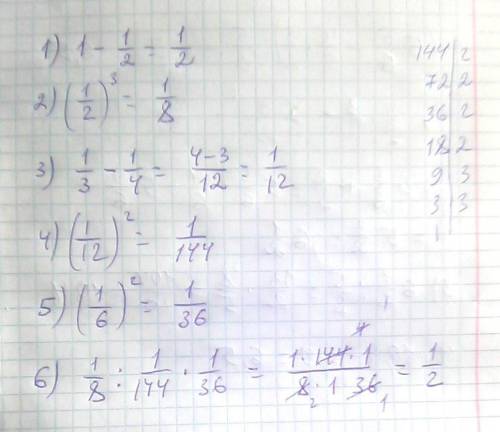 1) 1 - 1/2 = 1/2
2) (1/2)^3 = 1/8
3) 1/3 - 1/4 = (4-3)/12 = 1/12
4) (1/12)^2 = 1/144
5) (1/6)^2 = 1/36
6) 1/8 : 1/144 · 1/36 = (1 · 144^4 · 1)/(8_2 · 1 36_1) = 1/2
144 | 2
72 | 2
36 | 2
18 | 2
9 | 3
3 | 3
1